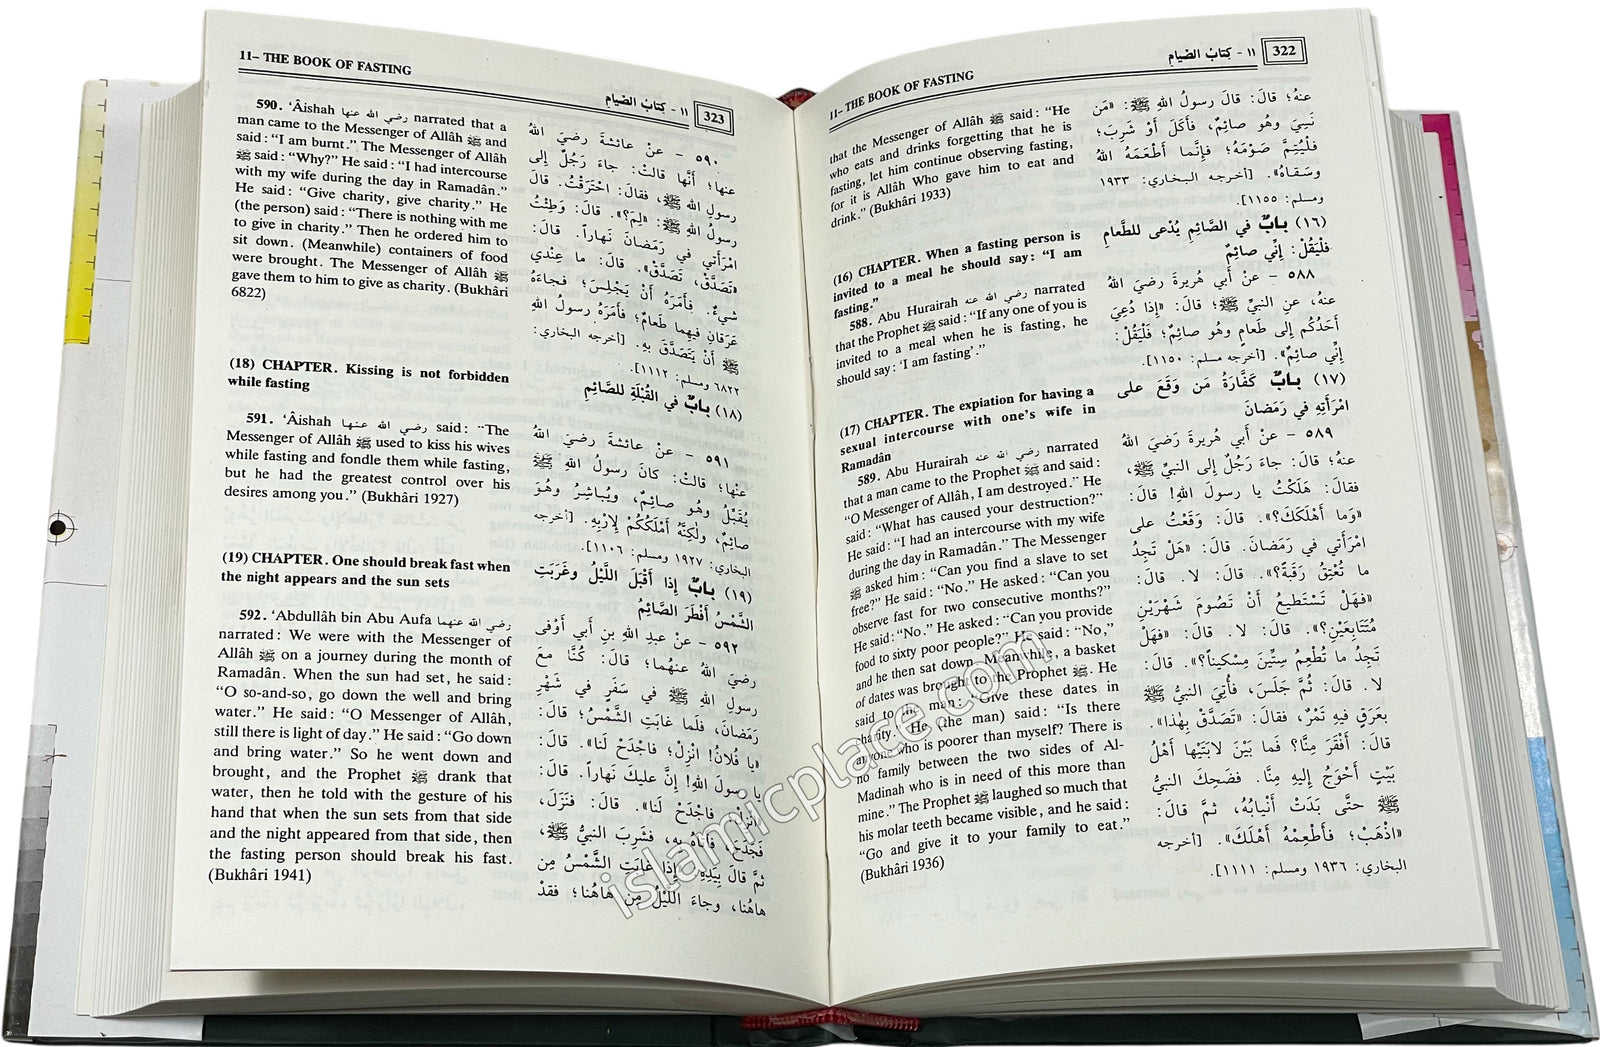 11– THE BOOK OF FASTING
١١ - كِتابُ الصِّيامِ
322
that the Messenger of Allâh ﷺ said: “He
who eats and drinks forgetting that he is
fasting, let him continue observing fasting,
for it is Allâh Who gave him to eat and
drink.” (Bukhâri 1933)
(16) CHAPTER. When a fasting person is
invited to a meal he should say: “I am
fasting.”
588. Abu Hurairah رضي الله عنه narrated
that the Prophet ﷺ said: “If any one of you is
invited to a meal when he is fasting, he
should say: ‘I am fasting’.”
(17) CHAPTER. The expiation for having a
sexual intercourse with one’s wife in
Ramadân
589. Abu Hurairah رضي الله عنه narrated
that a man came to the Prophet ﷺ and said:
“O Messenger of Allâh, I am destroyed.” He
said: “What has caused your destruction?”
He said: “I had an intercourse with my wife
during the day in Ramadân.” The Messenger
ﷺ asked him: “Can you find a slave to set
free?” He said: “No.” He asked: “Can you
observe fast for two consecutive months?”
He said: “No.” He asked: “Can you provide
food to sixty poor people?” He said: “No,”
and he then sat down. Meanwhile, a basket
of dates was brought to the Prophet ﷺ. He
said to the man: “Give these dates in
charity.” He (the man) said: “Is there
anyone who is poorer than myself? There is
no family between the two sides of Al-
Madinah who is in need of this more than
mine.” The Prophet ﷺ laughed so much that
his molar teeth became visible, and he said:
“Go and give it to your family to eat.”
(Bukhâri 1936)
عنهُ؛ قالَ: قالَ رسولُ اللهِ ﷺ: «مَن
نَسِيَ وهُو صائِمٌ، فأكَلَ أوْ شَرِبَ؛
فلْيُتِمَّ صَوْمَهُ؛ فإنَّما أطْعَمَهُ اللهُ
وسَقاهُ». [أخرجه البخاري: ١٩٣٣
ومسلم: ١١٥٥].
(١٦) بابٌ في الصَّائِمِ يُدْعى للطَّعامِ
فلْيَقُلْ: إنِّي صائِمٌ
٥٨٨ - عنْ أبي هُريرةَ رضيَ اللهُ
عنهُ، عنِ النبيِّ ﷺ؛ قالَ: «إذا دُعِيَ
أحَدُكُم إلى طَعامٍ وهُو صائِمٌ؛ فلْيَقُلْ:
إنِّي صائِمٌ». [أخرجه مسلم: ١١٥٠].
(١٧) بابٌ كَفَّارَةُ مَن وَقَعَ على
امْرَأتِهِ في رَمَضانَ
٥٨٩ - عنْ أبي هُريرةَ رَضيَ اللهُ
عنهُ؛ قالَ: جاءَ رَجُلٌ إلى النبيِّ ﷺ،
فقالَ: هَلَكْتُ يا رسولَ اللهِ! قالَ:
«وَما أهْلَكَكَ؟». قالَ: وَقَعْتُ على
امْرَأتي في رَمَضانَ. قالَ: «هَلْ تَجِدُ
ما تُعْتِقُ رَقَبَةً؟». قالَ: لا. قالَ:
«فهَلْ تَسْتَطيعُ أنْ تَصُومَ شَهْرَيْنِ
مُتَتابِعَيْنِ؟». قالَ: لا. قالَ: «فهَلْ
تَجِدُ ما تُطْعِمُ سِتِّينَ مِسْكيناً؟». قالَ:
لا. قالَ: ثُمَّ جَلَسَ، فأُتِيَ النبيُّ ﷺ
بعَرَقٍ فيهِ تَمْرٌ، فقالَ: «تَصَدَّقْ بِهٰذا».
قالَ: أفْقَرَ مِنَّا؟ فَما بَيْنَ لابَتَيْها أهْلُ
بَيْتٍ أحْوَجُ إليهِ مِنَّا. فضَحِكَ النبيُّ
ﷺ حتَّى بَدَتْ أنْيابُهُ، ثمَّ قالَ:
«اذْهَبْ؛ فأطْعِمْهُ أهْلَكَ». [أخرجه
البخاري: ١٩٣٦ ومسلم: ١١١١].
11– THE BOOK OF FASTING
١١ - كِتابُ الصِّيامِ
323
590. ‘Âishah رضي الله عنها narrated that a
man came to the Messenger of Allâh ﷺ and
said: “I am burnt.” The Messenger of Allâh
ﷺ said: “Why?” He said: “I had intercourse
with my wife during the day in Ramadân.”
He said: “Give charity, give charity.” He
(the person) said: “There is nothing with me
to give in charity.” Then he ordered him to
sit down. (Meanwhile) containers of food
were brought. The Messenger of Allâh ﷺ
gave them to him to give as charity. (Bukhâri
6822)
(18) CHAPTER. Kissing is not forbidden
while fasting
591. ‘Âishah رضي الله عنها said: “The
Messenger of Allâh ﷺ used to kiss his wives
while fasting and fondle them while fasting,
but he had the greatest control over his
desires among you.” (Bukhâri 1927)
(19) CHAPTER. One should break fast when
the night appears and the sun sets
592. ‘Abdullâh bin Abu Aufa رضي الله عنهما
narrated: We were with the Messenger of
Allâh ﷺ on a journey during the month of
Ramadân. When the sun had set, he said:
“O so-and-so, go down the well and bring
water.” He said: “O Messenger of Allâh,
still there is light of day.” He said: “Go down
and bring water.” So he went down and
brought, and the Prophet ﷺ drank that
water, then he told with the gesture of his
hand that when the sun sets from that side
and the night appeared from that side, then
the fasting person should break his fast.
(Bukhâri 1941)
٥٩٠ - عنْ عائشةَ رضيَ اللهُ
عنها؛ أنَّها قالتْ: جاءَ رَجُلٌ إلى
رسولِ اللهِ ﷺ، فقالَ: احْتَرَقْتُ. قالَ
رسولُ اللهِ ﷺ: «لِمَ؟». قالَ: وَطِئْتُ
امْرَأتي في رَمَضانَ نَهاراً. قالَ:
«تَصَدَّقْ، تَصَدَّقْ». قالَ: ما عِنْدي
شيءٌ. فأمَرَهُ أنْ يَجْلِسَ؛ فجاءَهُ
عَرَقانِ فيهِما طَعامٌ؛ فأمَرَهُ رسولُ اللهِ
ﷺ أنْ يَتَصَدَّقَ بهِ. [أخرجه البخاري:
٦٨٢٢ ومسلم: ١١١٢].
(١٨) بابٌ في القُبْلَةِ للصَّائِمِ
٥٩١ - عنْ عائشةَ رضيَ اللهُ
عنْها؛ قالتْ: كانَ رسولُ اللهِ ﷺ
يُقَبِّلُ وهُو صائِمٌ، ويُباشِرُ وهُوَ
صائِمٌ، ولٰكِنَّهُ أمْلَكُكُمْ لإرْبِهِ. [أخرجه
البخاري: ١٩٢٧ ومسلم: ١١٠٦].
(١٩) بابٌ إذا أقْبَلَ اللَّيْلُ وغَرَبَتِ
الشَّمْسُ أفْطَرَ الصَّائِمُ
٥٩٢ - عنْ عبدِ اللهِ بنِ أبي أوْفى
رضيَ اللهُ عنهُما؛ قالَ: كُنَّا معَ
رسولِ اللهِ ﷺ في سَفَرٍ في شَهْرِ
رمَضانَ، فلَما غابَتِ الشَّمْسُ؛ قالَ:
«يا فُلانُ! انْزِلْ؛ فاجْدَحْ لَنا». قالَ:
يا رسولَ اللهِ! إنَّ عليكَ نَهاراً. قالَ:
«انْزِلْ فاجْدَحْ لَنا». قالَ: فنَزَلَ،
فجَدَحَ، فأتاهُ بهِ، فشَرِبَ النبيُّ ﷺ،
ثمَّ قالَ بيَدِهِ: «إذا غابَتِ الشَّمْسُ مِن
هاهُنا، وجاءَ اللَّيْلُ مِن هاهُنا؛ فقدْ
islamicplace.com